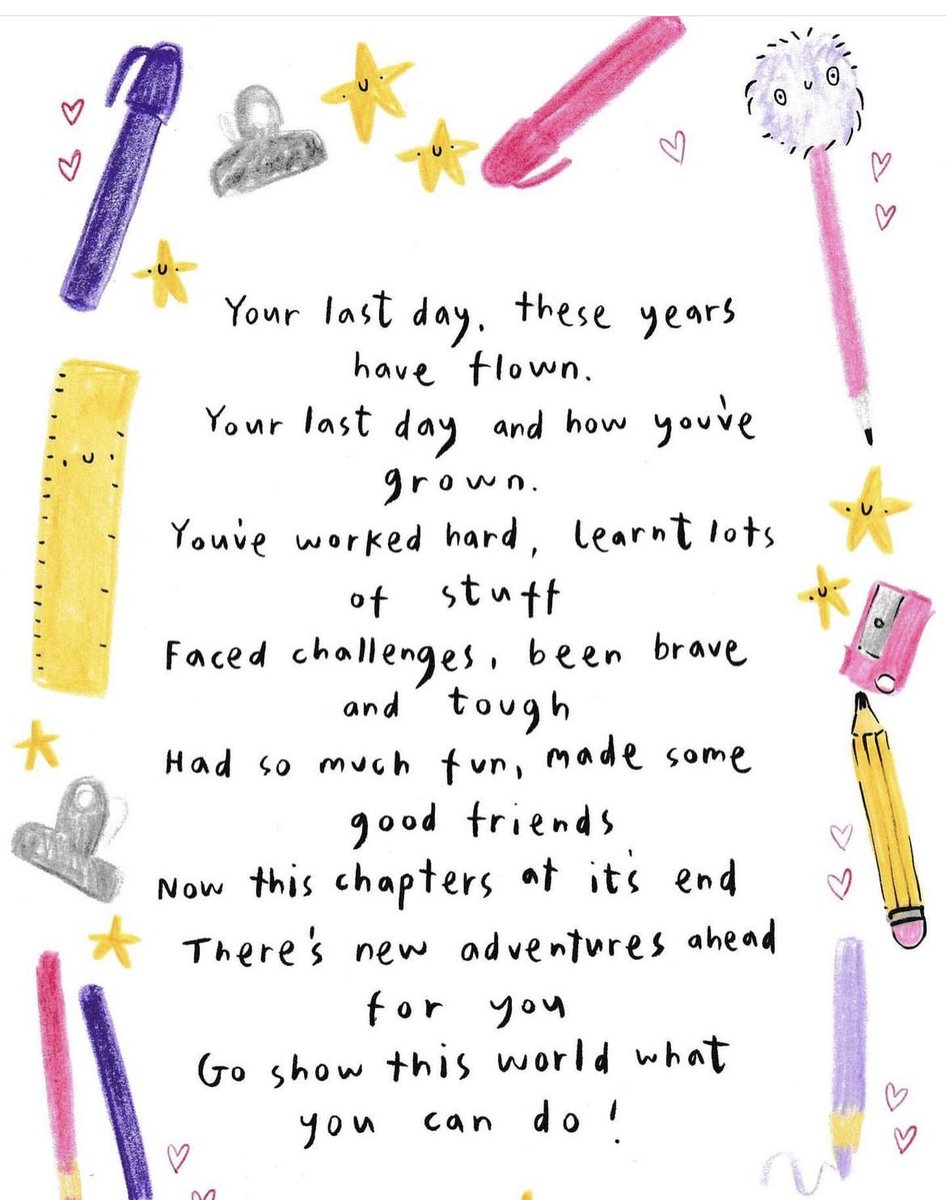 Your last day, these years
have flown.
Your last day and how you've
grown.
You've worked hard, learnt lots
of stuff
Faced challenges, been brave
and tough
Had so much fun, made some
good friends
Now this chapters at it's end
There's new adventures ahead
for you
Go show this world what
you can do!